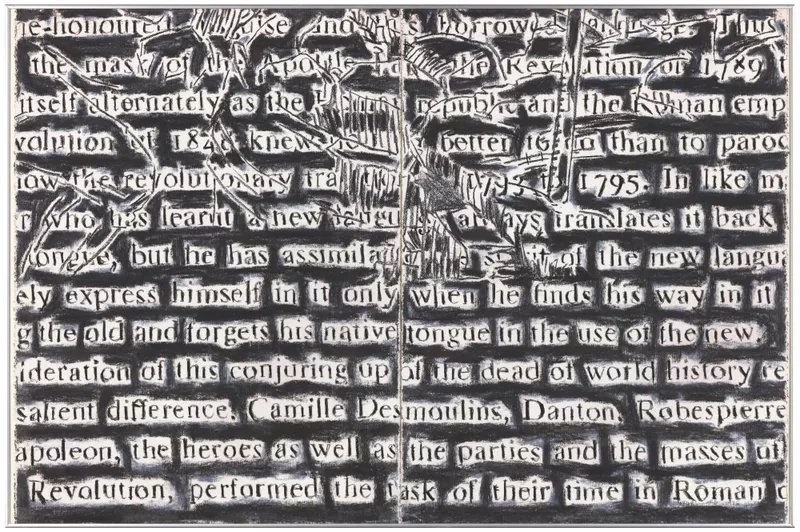 e-honoured ise and s borrowed Thus
the mask of the Apostle the Revolution of 1789 t
itself alternately as the republic and the Roman emp
volution of 1848 knew better to do than to paroc
now the revolutionary tra 1793 to 1795. In like m
r who has learnt a new langu always translates it back
tongue, but he has assimilat spirit of the new langua
ely express himself in it only when he finds his way in it
g the old and forgets his native tongue in the use of the new
ideration of this conjuring up of the dead of world history re
salient difference. Camille Desmoulins, Danton, Robespierre
apoleon, the heroes as well as the parties and the masses of
Revolution, performed the task of their time in Roman c